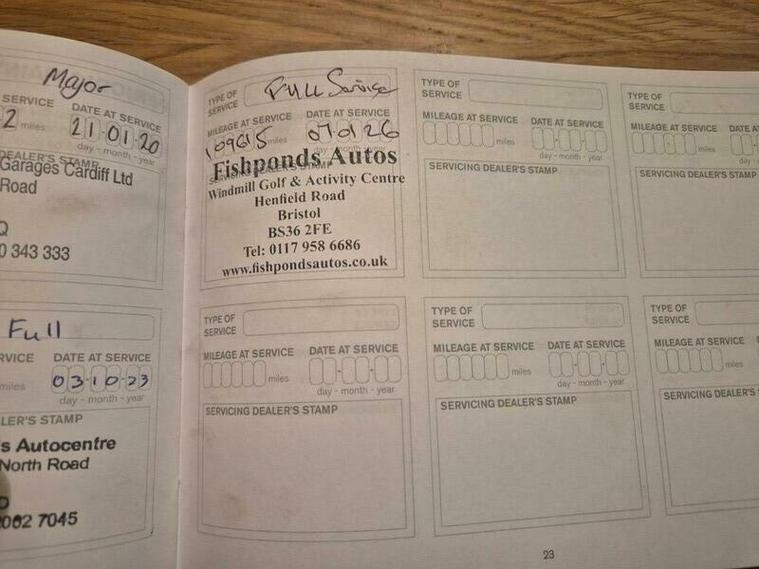 Major
SERVICE DATE AT SERVICE
2 miles 21-01-20
day - month - year
DEALER'S STAMP
Garages Cardiff Ltd
Road
Q
0 343 333
Full
RVICE DATE AT SERVICE
miles 03-10-23
day - month - year
LER'S STAMP
s Autocentre
North Road
2062 7045
TYPE OF SERVICE Full Service
MILEAGE AT SERVICE DATE AT SERVICE
109615 miles 07 01 26
day - month - year
SERVICING DEALER'S STAMP
Fishponds Autos
Windmill Golf & Activity Centre
Henfield Road
Bristol
BS36 2FE
Tel: 0117 958 6686
www.fishpondsautos.co.uk
TYPE OF
SERVICE
MILEAGE AT SERVICE DATE AT SERVICE
miles
day - month - year
SERVICING DEALER'S STAMP
TYPE OF
SERVICE
MILEAGE AT SERVICE DATE A
miles
day
SERVICING DEALER'S STAMP
TYPE OF
SERVICE
MILEAGE AT SERVICE DATE AT SERVICE
miles
day - month - year
SERVICING DEALER'S STAMP
TYPE OF
SERVICE
MILEAGE AT SERVICE DATE AT SERVICE
miles
day - month - year
SERVICING DEALER'S STAMP
TYPE OF
SERVICE
MILEAGE AT SERVICE DATE
miles
day
SERVICING DEALER'S S
23